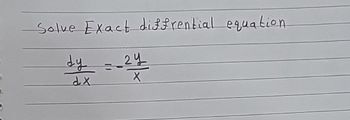 Solve Exact diffrential equation
dy/dx = -2y/x